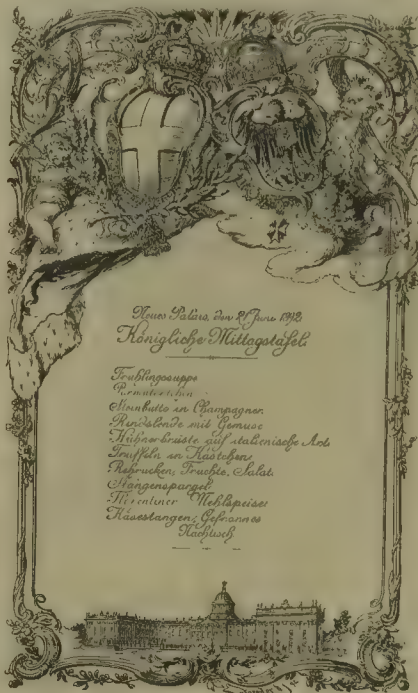 Neues Palais, den 21 Juni 1892
Königliche Mittagstafel.
Frühlingssuppe
Steinbutte in Champagner
Rindslende mit Gemüse
Hühnerbrüste auf italienische Art
Trüffeln in Kästchen
Rehrücken, Früchte, Salat.
Stangenspargel
Mehlspeise
Käsestangen, Gefrornes
Nachtisch